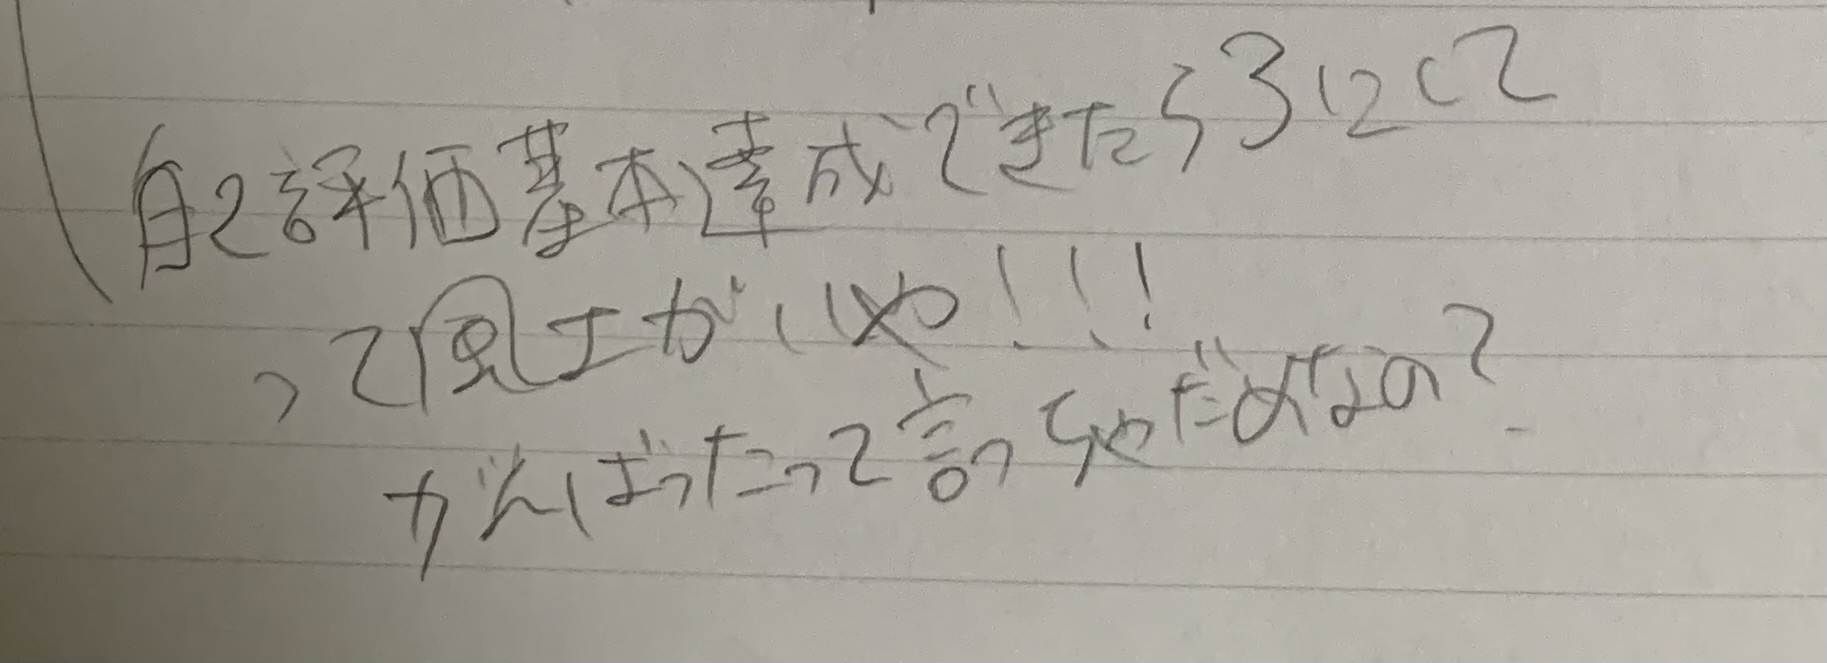 自己評価基本達成できたら3にして
って風土がいや!!!
がんばったって言っちゃだめなの?